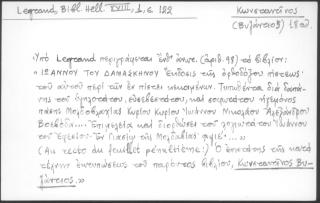 Legrand, Bibl. Hell. XVIII, 1, σ. 122
Κωνσταντῖνος
(Βυζάντιος) 18ου.
Ὑπὸ Legrand περιγράφεται ἐνθ' ἀνωτ. (ἀριθ. 98) τὸ βιβλίον:
"ΙΩΑΝΝΟΥ ΤΟΥ ΔΑΜΑΣΚΗΝΟΥ Ἔκδοσις τῆς ὀρθοδόξου πίστεως
τοῦ αὐτοῦ περὶ τῶν ἐν πίστει κεκοιμημένων. Τυποῦνται διὰ δαπάνης
τοῦ ὑψηλοτάτου, εὐσεβεστάτου, καὶ σοφωτάτου ἡγεμόνος
πάσης Μολδοβλαχίας Κυρίου Κυρίου Ἰωάννου Νικολάου Ἀλεξάνδρου
Βοεβόδα· Ἐπιμελείᾳ καὶ διορθώσει τοῦ Ἰωάννου
τοῦ Ἐφεσίου· Ἐν Γιασίῳ τῆς Μολδαβίας αψιε΄..."
(Au recto du feuillet pénultième:) Ὁ ἐπιστάτης τῆς κατὰ
τέχνην ἐκτυπώσεως τοῦ παρόντος βιβλίου, Κωνσταντῖνος Βυ-
ζάντιος.»